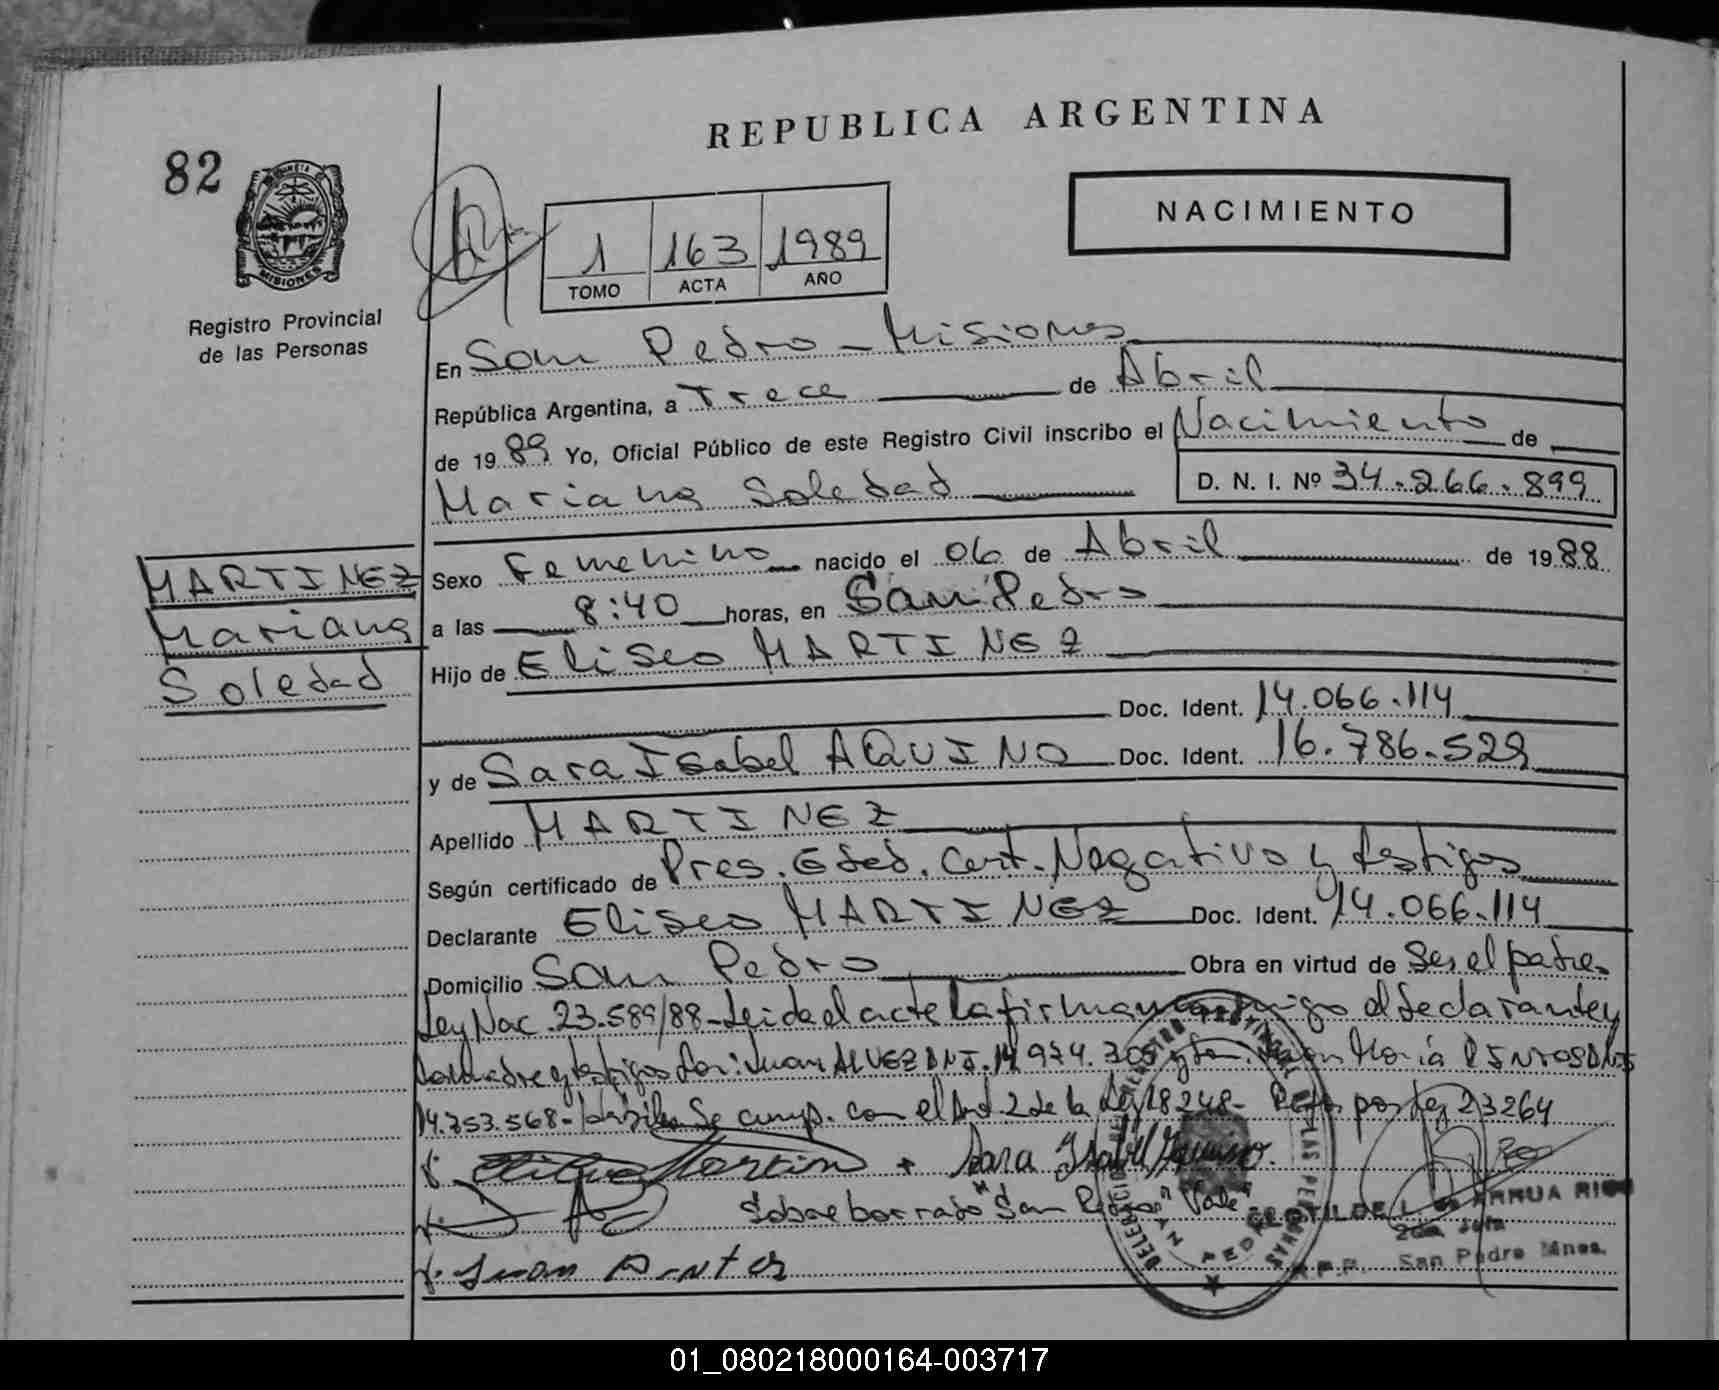 REPUBLICA ARGENTINA
82
NACIMIENTO
1 163 1989
TOMO ACTA AÑO
PROVINCIA DE
MISIONES
Registro Provincial
de las Personas
En San Pedro - Misiones
República Argentina, a Trece de Abril
de 1989 Yo, Oficial Público de este Registro Civil inscribo el Nacimiento de
Mariana Soledad D. N. I. Nº 34.266.899
MARTINEZ
Mariana
Soledad
Sexo Femenino nacido el 06 de Abril de 1988
a las 8:40 horas, en San Pedro
Hijo de Eliseo MARTINEZ
Doc. Ident. 14.066.114
y de Sara Isabel AQUINO Doc. Ident. 16.786.529
Apellido MARTINEZ
Según certificado de Pres. Edad. Cert. Negativo y testigos
Declarante Eliseo MARTINEZ Doc. Ident. 14.066.114
Domicilio San Pedro Obra en virtud de Ser el padre
Ley Nac. 23.589/88 - Leida el acta la firman conmigo el declarante y
la madre y testigos Sr: Juan ALVEZ DNI. 14.974.305 y Sr. Juan María
14.753.568- Se cump. con el Art. 2 de la Ley 18248- por Ley 23264
Sara Isabel Aquino.
Sobre borrado "San Pedro" Vale
CLOTILDE L. ARRUA RIOS
2da. Jefa
San Pedro Mnes.
SAN PEDRO
01_080218000164-003717